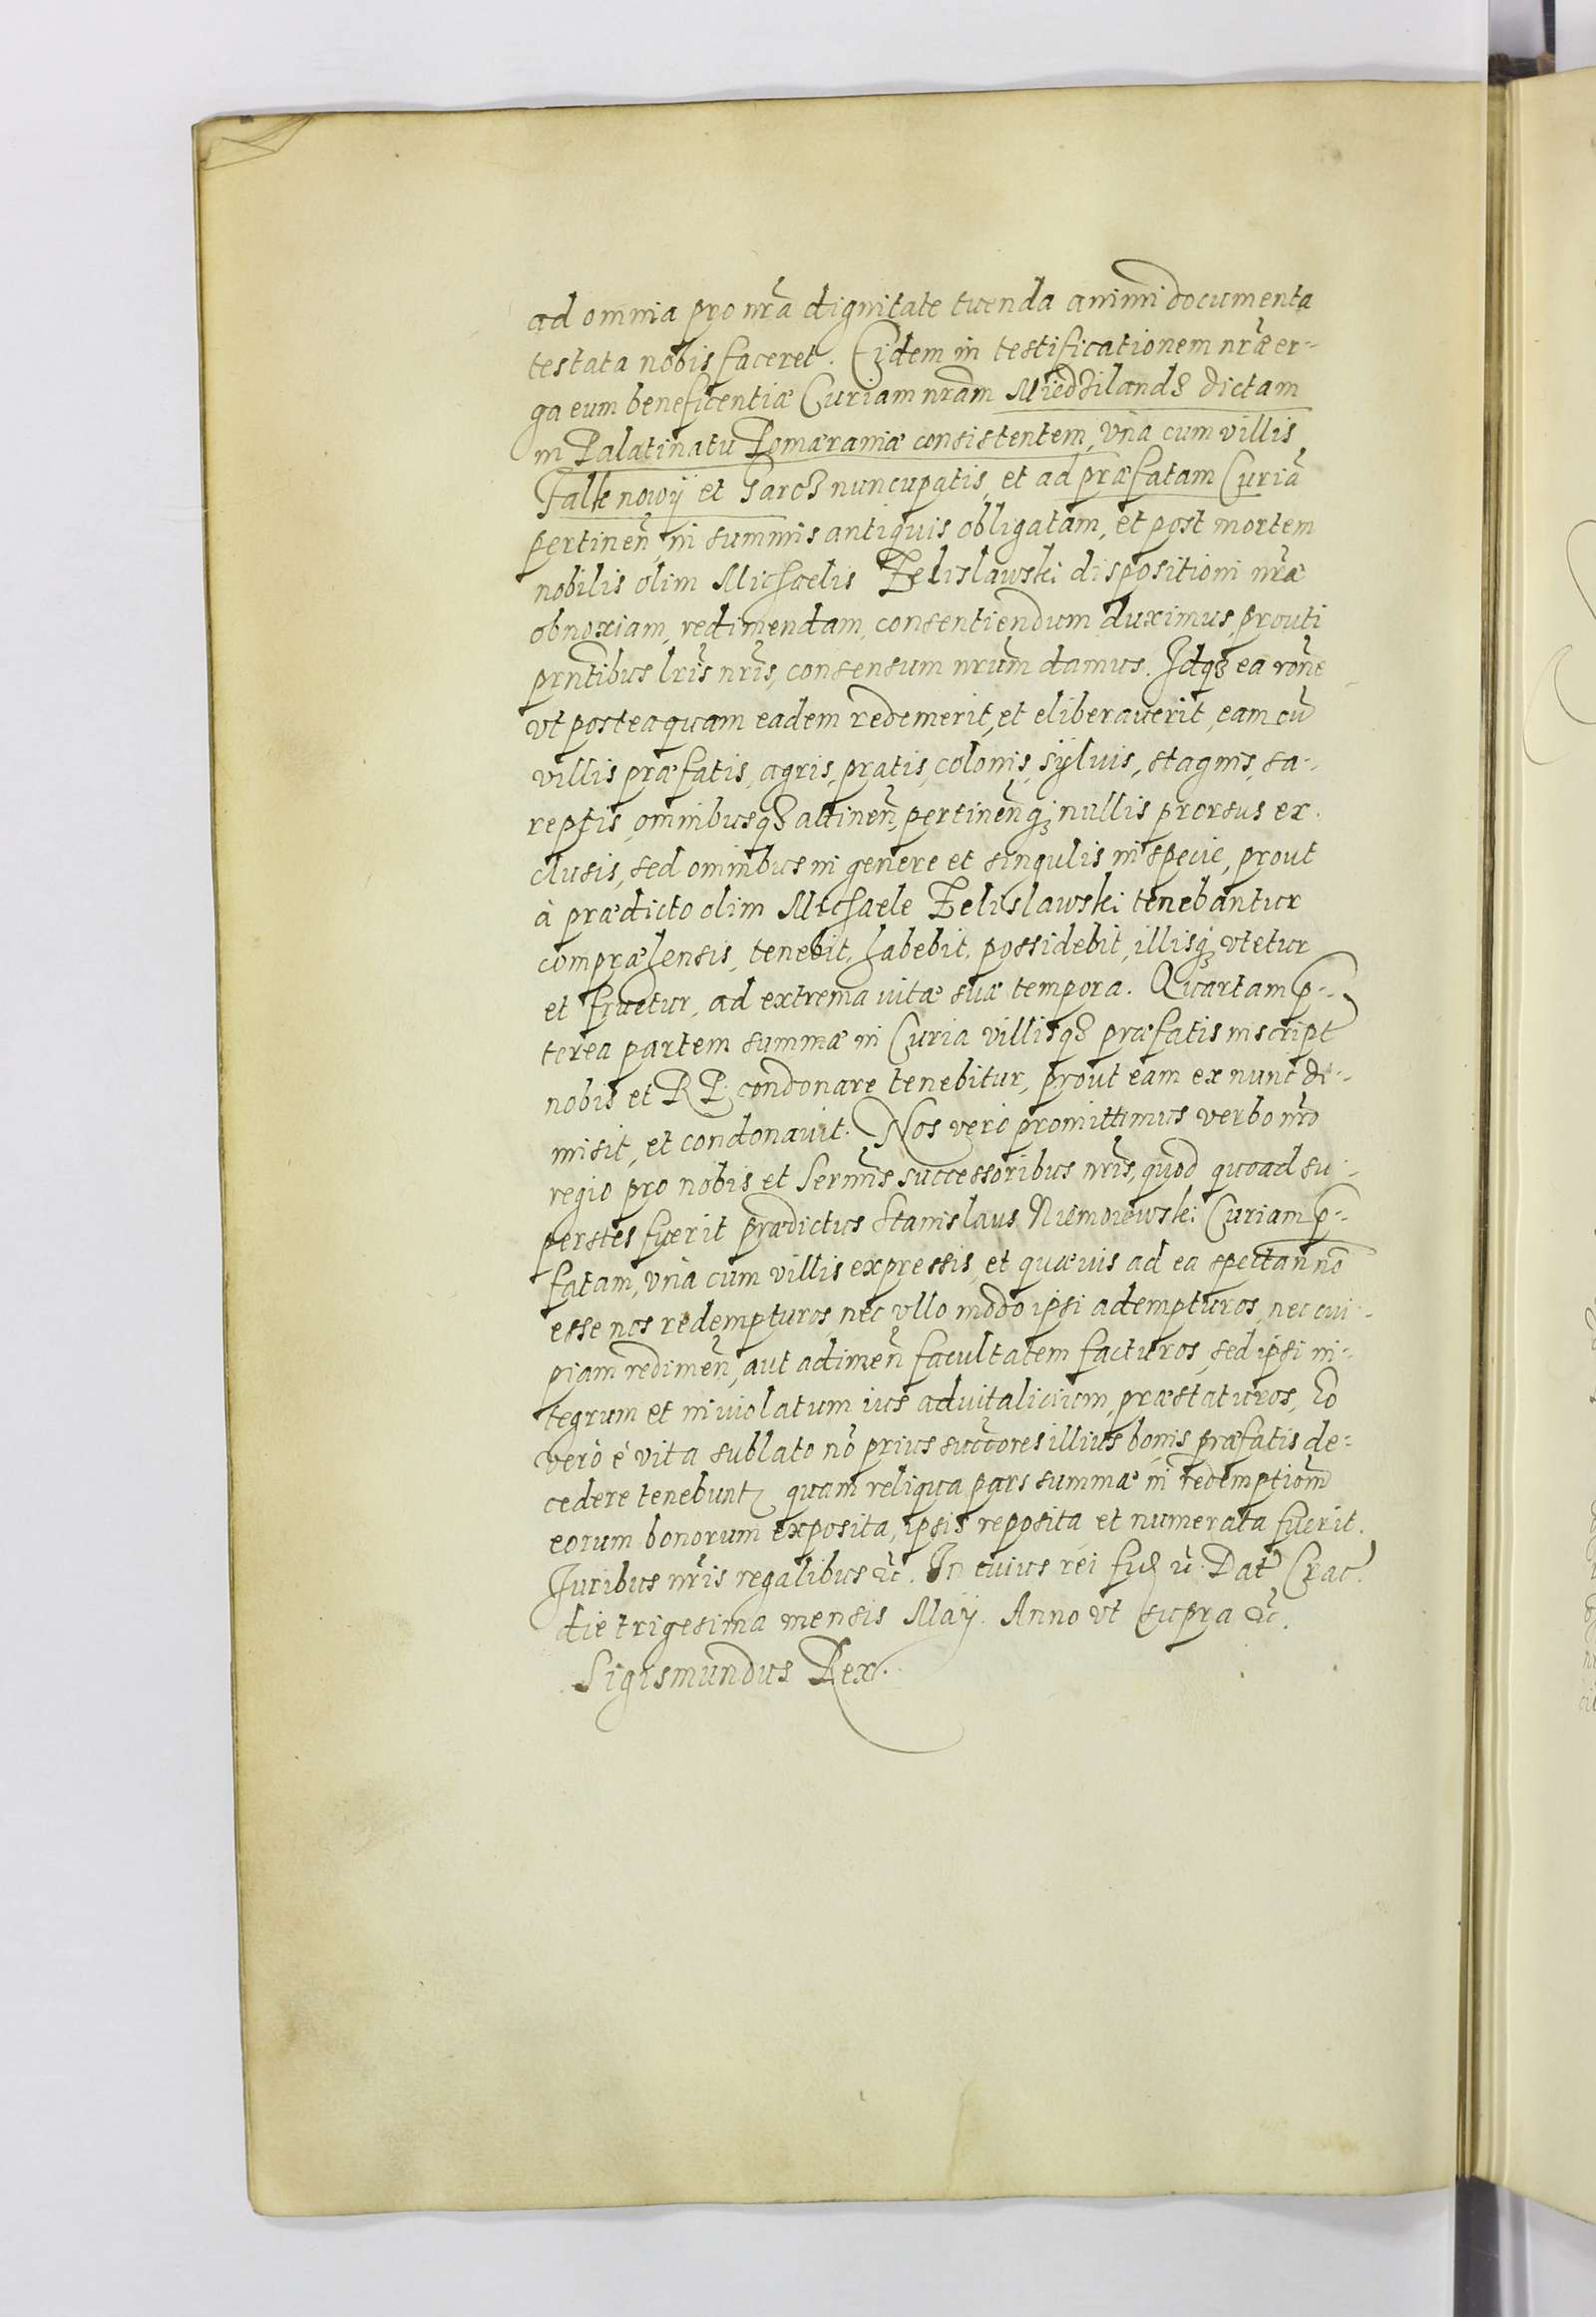 ad omnia pro nr̃a dignitate tuenda animi documenta
testata nobis faceret. Eidem in testificationem nr̃æ er-
ga eum beneficentiæ Curiam nram̃ Miedzilandz dictam
in Palatinatu Pomæraniæ consistentem, vna cum villis
Falknowÿ et Garcz nuncupatis, et ad præfatam Curiã
pertineñ, in summis antiquis obligatam, et post mortem
nobilis olim Michaelis Zelislawski dispositioni nr̃æ
obnoxiam, redimendam, consentiendum duximus, prouti
prñtibus lr̃is nr̃is, consensum nrũm damus. Idqз ea rõne
vt posteaquam eadem redemerit, et eliberauerit, eam cũ
villis præfatis, agris, pratis, colonis, sÿluis, stagnis, sa-
reptis, omnibusqз attineñ, pertineñqз nullis prorsus ex-
clusis, sed omnibus in genere et singulis in specie, prout
à prædicto olim Michaele Zelislawski tenebantur
compræhensis, tenebit, habebit, possidebit, illisqз vtetur
et fruetur, ad extrema vitæ suæ tempora. Quartam p̃-
terea partem summæ in Curia villisqз præfatis inscript
nobis et RP. condonare tenebitur, prout eam ex nunc di-
misit, et condonauit. Nos vero promittimus verbo nr̃o
regio pro nobis et Sermis successoribus nr̃is, quod quoad su-
perstes fuerit prædictus Stanislaus Niemoiewski Curiam p̃-
fatam, vna cum villis expressis, et quæuis ad ea spectañ nõ
esse nos redempturos, nec vllo modo ipsi adempturos, nec cui-
piam redimeñ, aut adimeñ facultatem facturos, sed ipsi in-
tegrum et inuiolatum ius aduitalicium, præstaturos, Eo
vero è vita sublato nõ prius succõres illius bonis præfatis de-
cedere tenebuntr quam reliqua pars summæ in redemptiõm
eorum bonorum exposita, ipsis reposita et numerata fuerit.
Juribus nr̃is regalibus &c̃. In cuius rei fid &c̃. Dat̃ Crac̃.
die trigesima mensis Maÿ. Anno vt supra &c̃.
Sigismundus Rex.